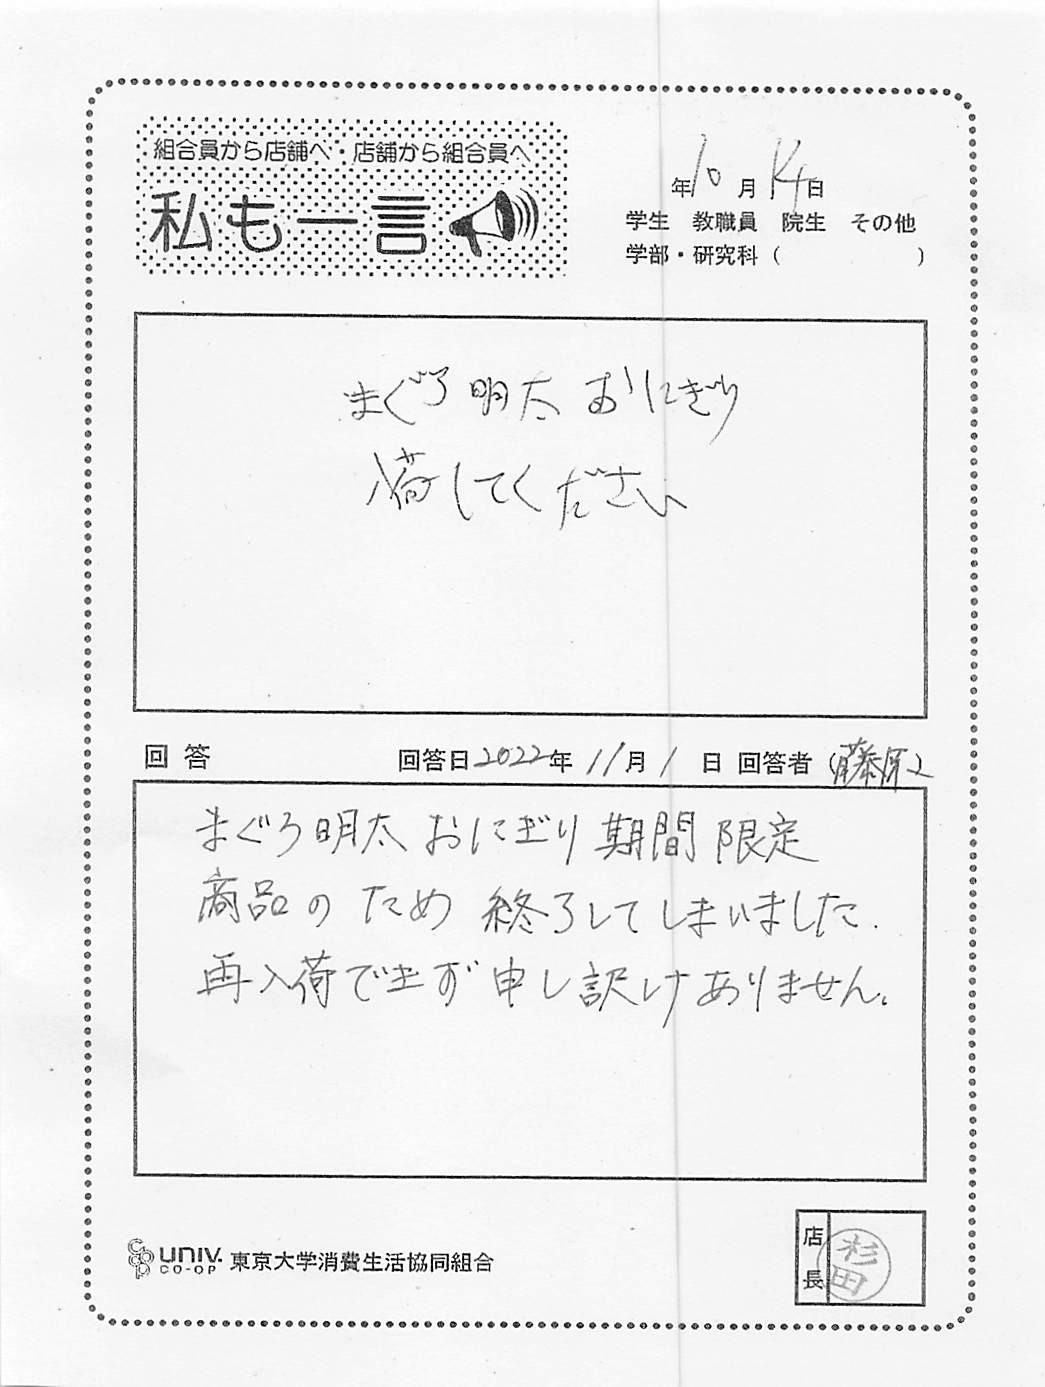 組合員から店舗へ・店舗から組合員へ
私も一言
年10月14日
学生 教職員 院生 その他
学部・研究科（ ）
まぐろ明太おにぎり
入荷してください
回答 回答日2022年11月1日 回答者（藤原）
まぐろ明太おにぎり期間限定
商品のため終了してしまいました.
再入荷できず申し訳けありません。
COOP UNIV. CO-OP 東京大学消費生活協同組合
店長 杉田